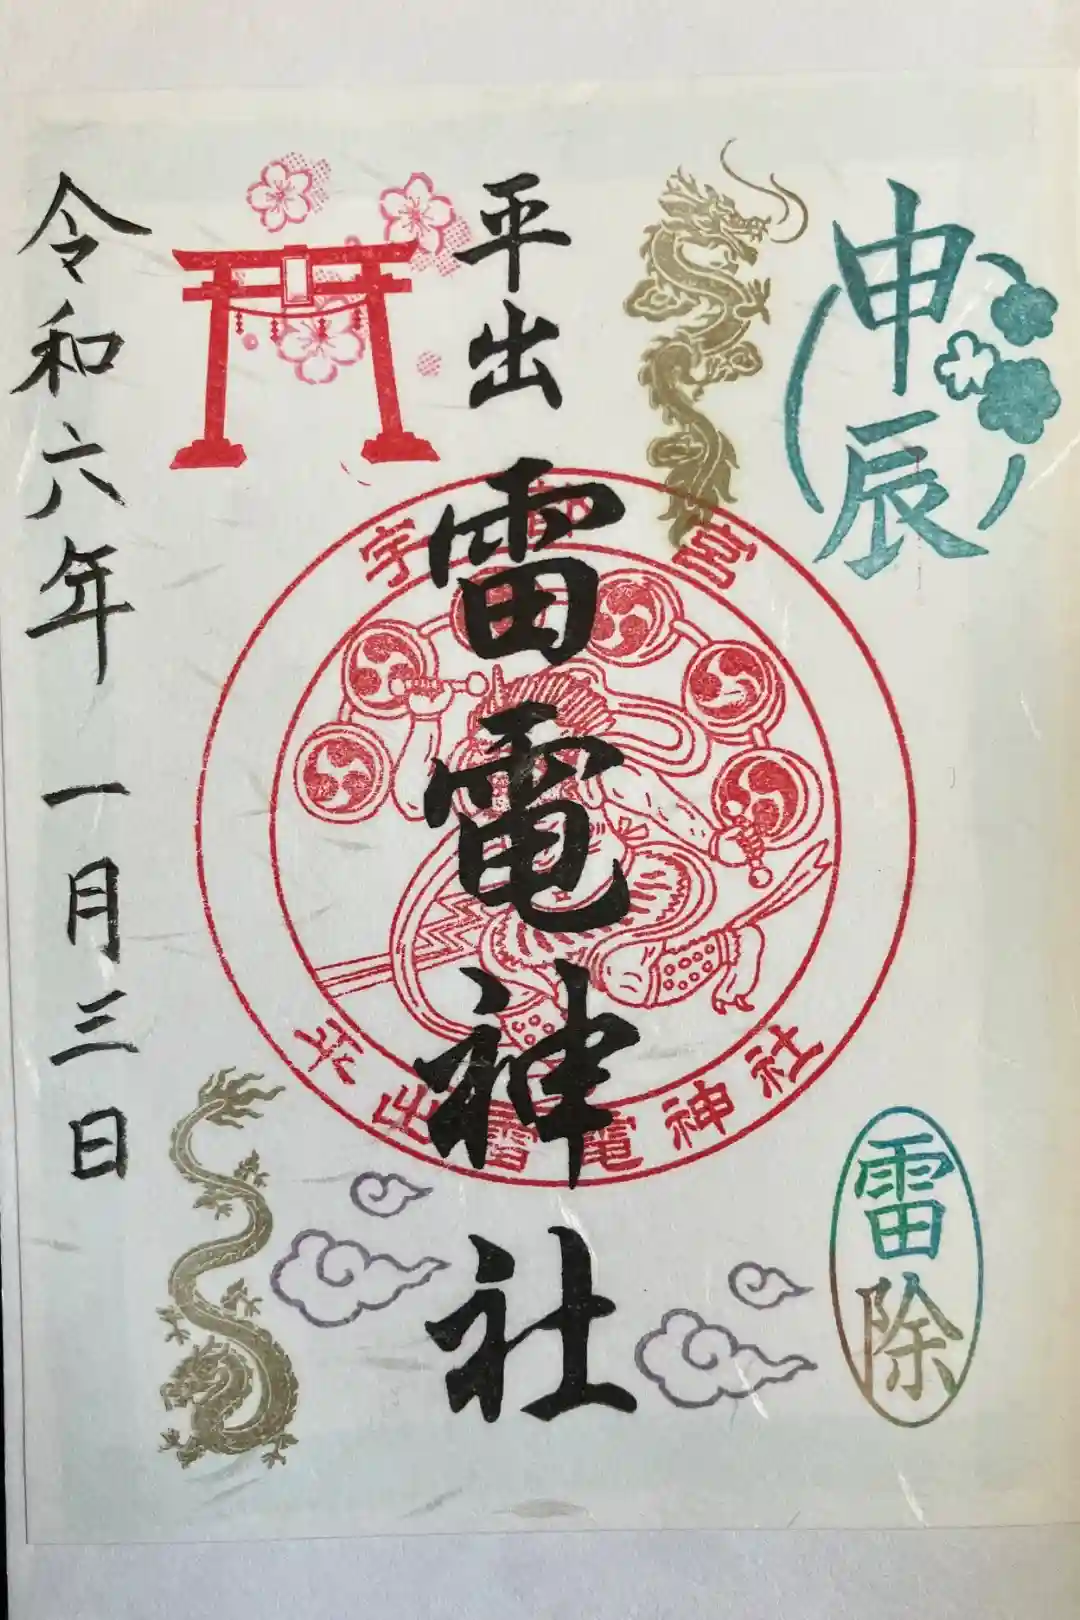 申辰
雷除
平出
雷電神社
宇都宮
平出雷電神社
令和六年一月三日